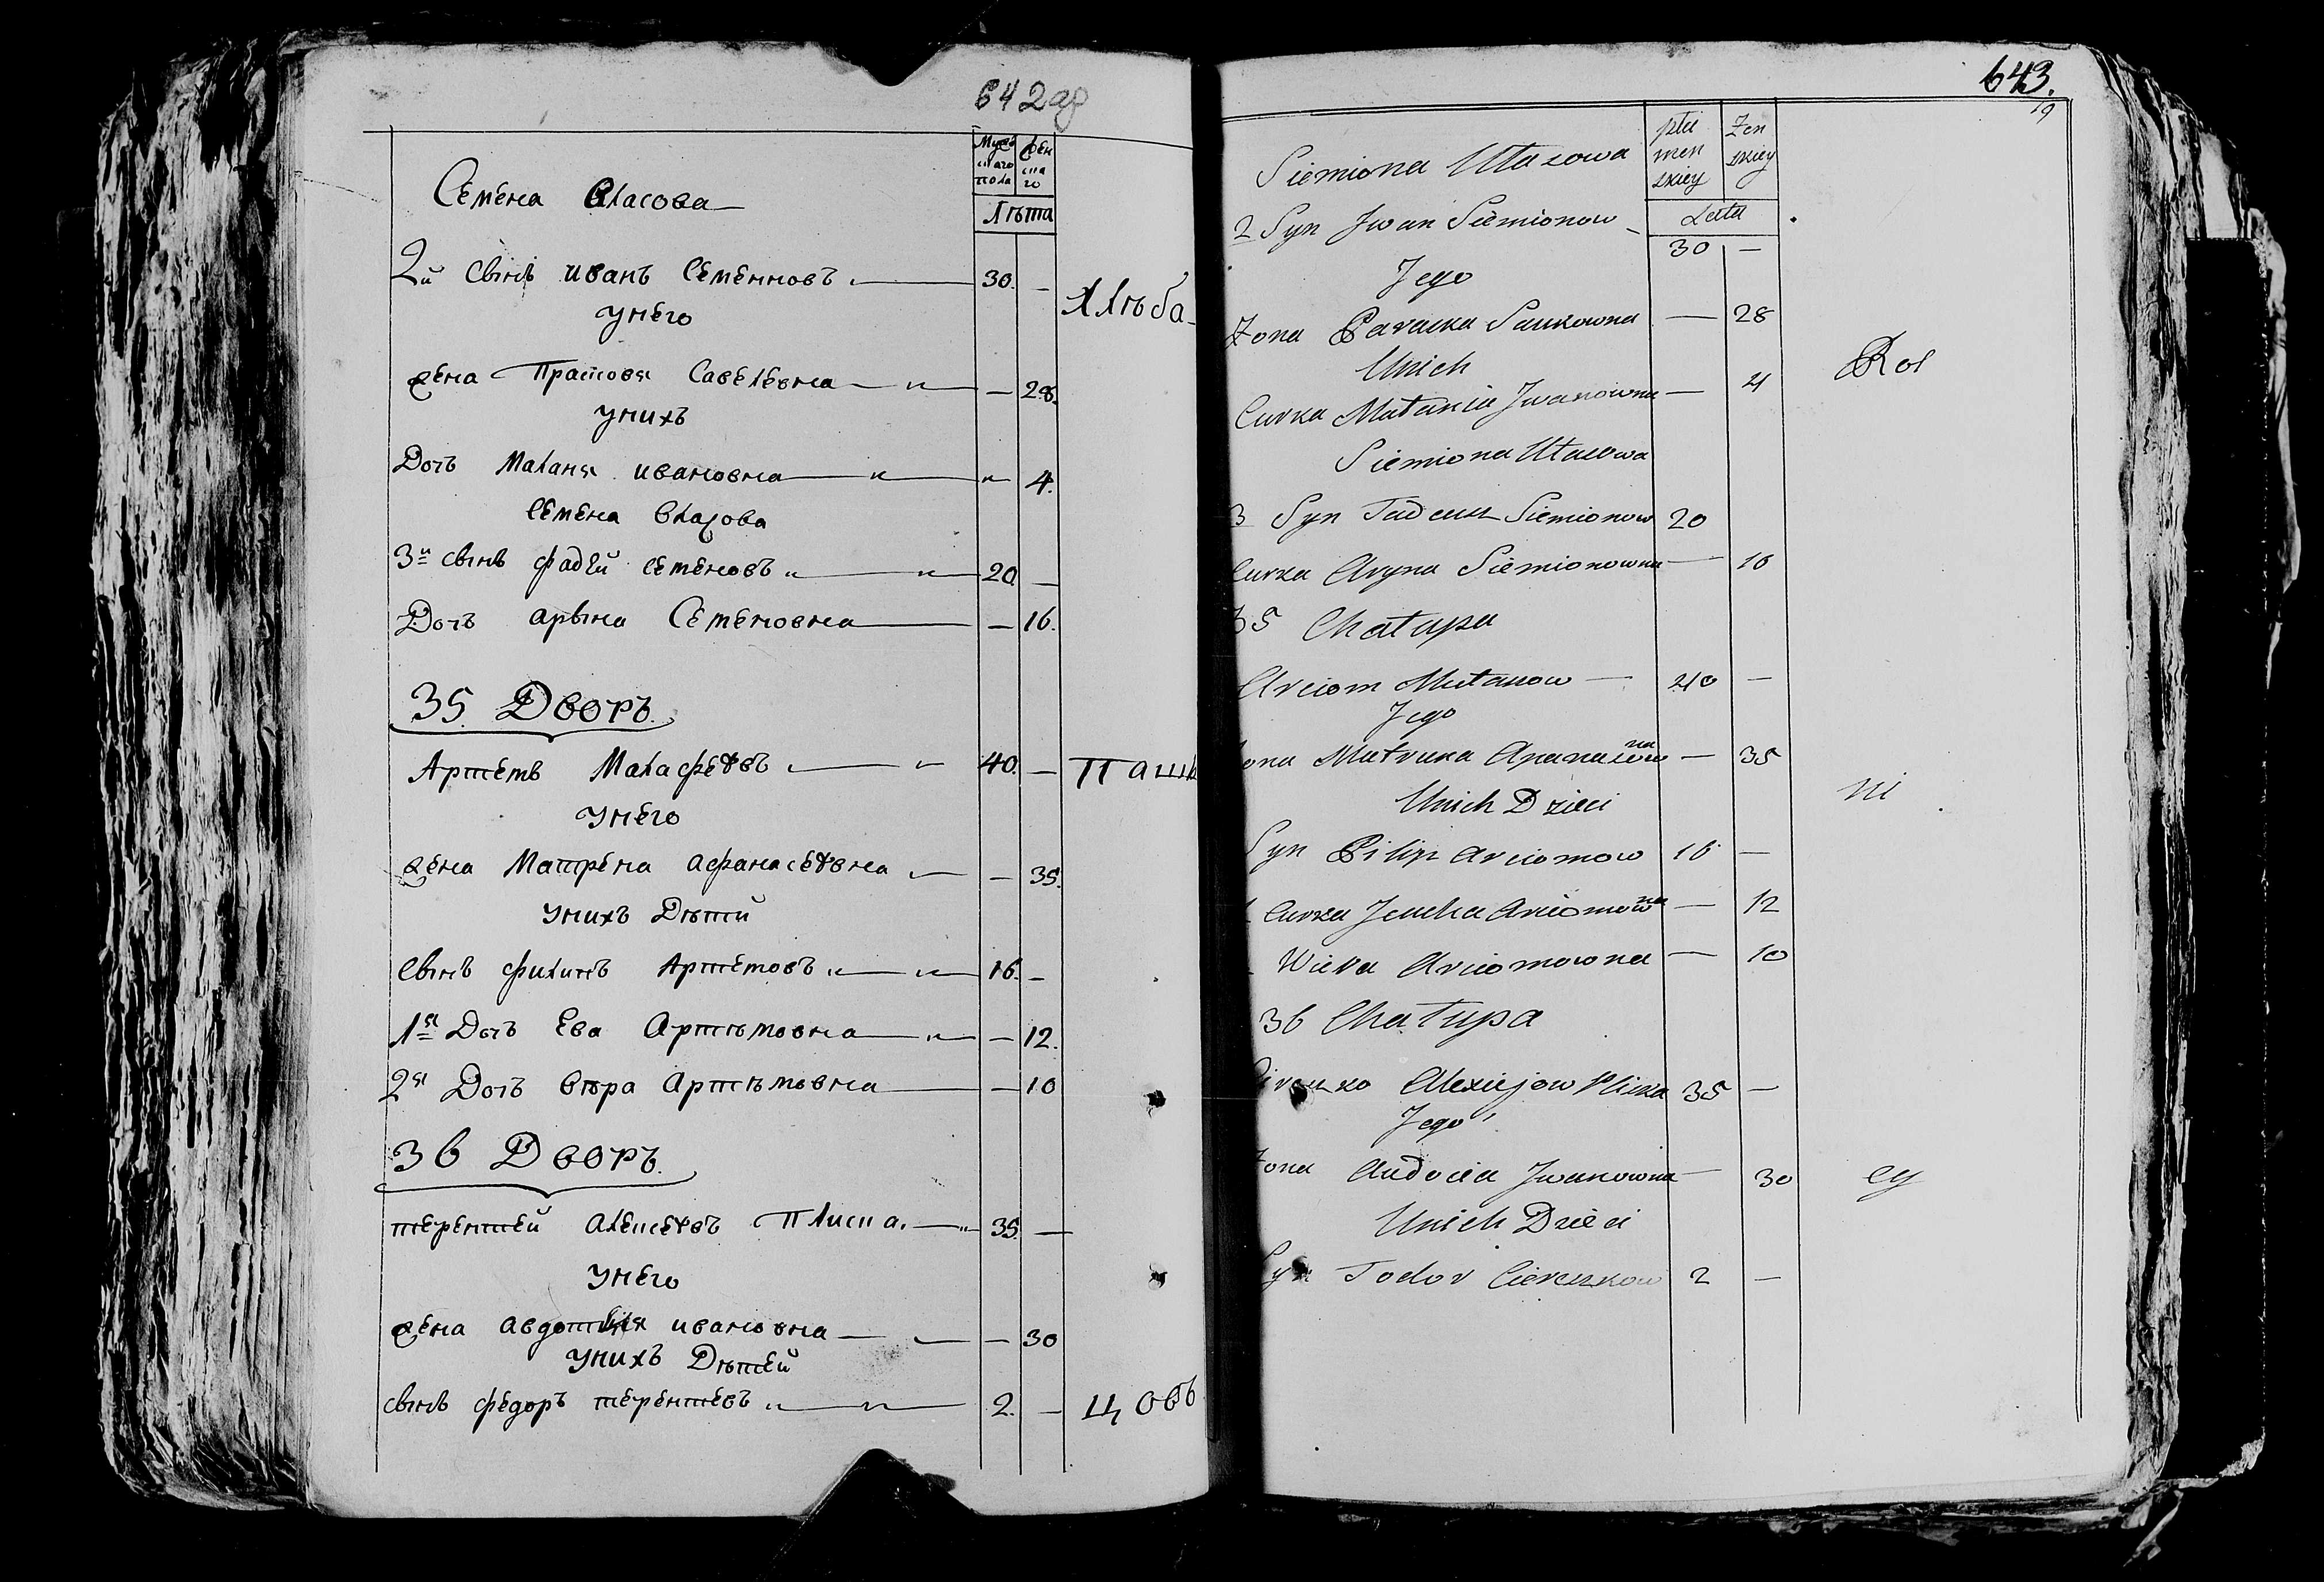 642 об
Мужскаго пола
Женскаго
Лѣта
Семена Власова
2й сынъ иванъ Семенновъ 30. —
унего
жена Прасковя Савелевна — 28.
унихъ
Дочъ Маланя ивановна 4.
Семена Власова
3й сынъ фадей семеновъ 20 —
Дочъ арына Семеновна — 16.
Хлѣба
35 Дворъ.
Артемъ Малафеѣвъ 40. —
унего
жена Матрена афанасеѣвна — 35.
унихъ Дѣти
сынъ филипъ Артемовъ 16. —
1я Дочъ Ева Артѣмовна — 12.
2я Дочъ вѣра Артѣмовна — 10
Паш
36 Дворъ.
терентей алексеѣвъ Плиска. 35. —
унего
жена авдотия ивановна — 30
унихъ Дѣтей
сынъ федоръ терентевъ 2. —
цовъ
643.
19
płci męskiey
Żenskiey
Lata
Siemiona Ułasowa
2 Syn Jwan Siemionow 30 —
Jego
Żona Paraska Saukowna — 28
Unich
Curka Małania Jwanowna — 4
Siemiona Ułasowa
3 Syn Tadeusz Siemionow 20
Curka Aryna Siemionowna — 16
Rol
35 Chałupa
Arciom Małanow — 40 —
Jego
ona Matruna Apanasowna — 35
Unich Dzieci
Syn Pilip Arciomow 16 —
Curka Jeucha Arciomowna — 12
Wiera Arciomowna — 10
ni
36 Chałupa
Alexiejow Pliska 35 —
Jego
Żona Audocia Jwanowna — 30
Unich Dzieci
Syn Todor Cieraszkow 2 —
cy